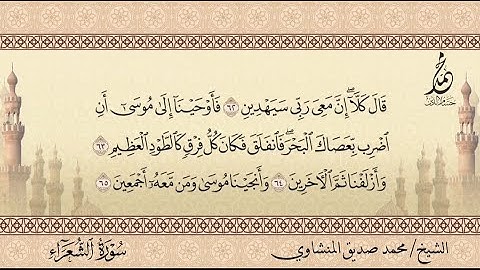 قَالَ كَلَّآۖ إِنَّ مَعِىَ رَبِّى سَيَهْدِينِ ٦٢ فَأَوْحَيْنَآ إِلَىٰ مُوسَىٰٓ أَنِ
ٱضْرِب بِّعَصَاكَ ٱلْبَحْرَۖ فَٱنفَلَقَ فَكَانَ كُلُّ فِرْقٍ كَٱلطَّوْدِ ٱلْعَظِيمِ ٦٣
وَأَزْلَفْنَا ثَمَّ ٱلْءَاخَرِينَ ٦٤ وَأَنجَيْنَا مُوسَىٰ وَمَن مَّعَهُۥٓ أَجْمَعِينَ ٦٥
الشيخ/ محمد صديق المنشاوي
سُورَةُ الشُّعَرَاءِ